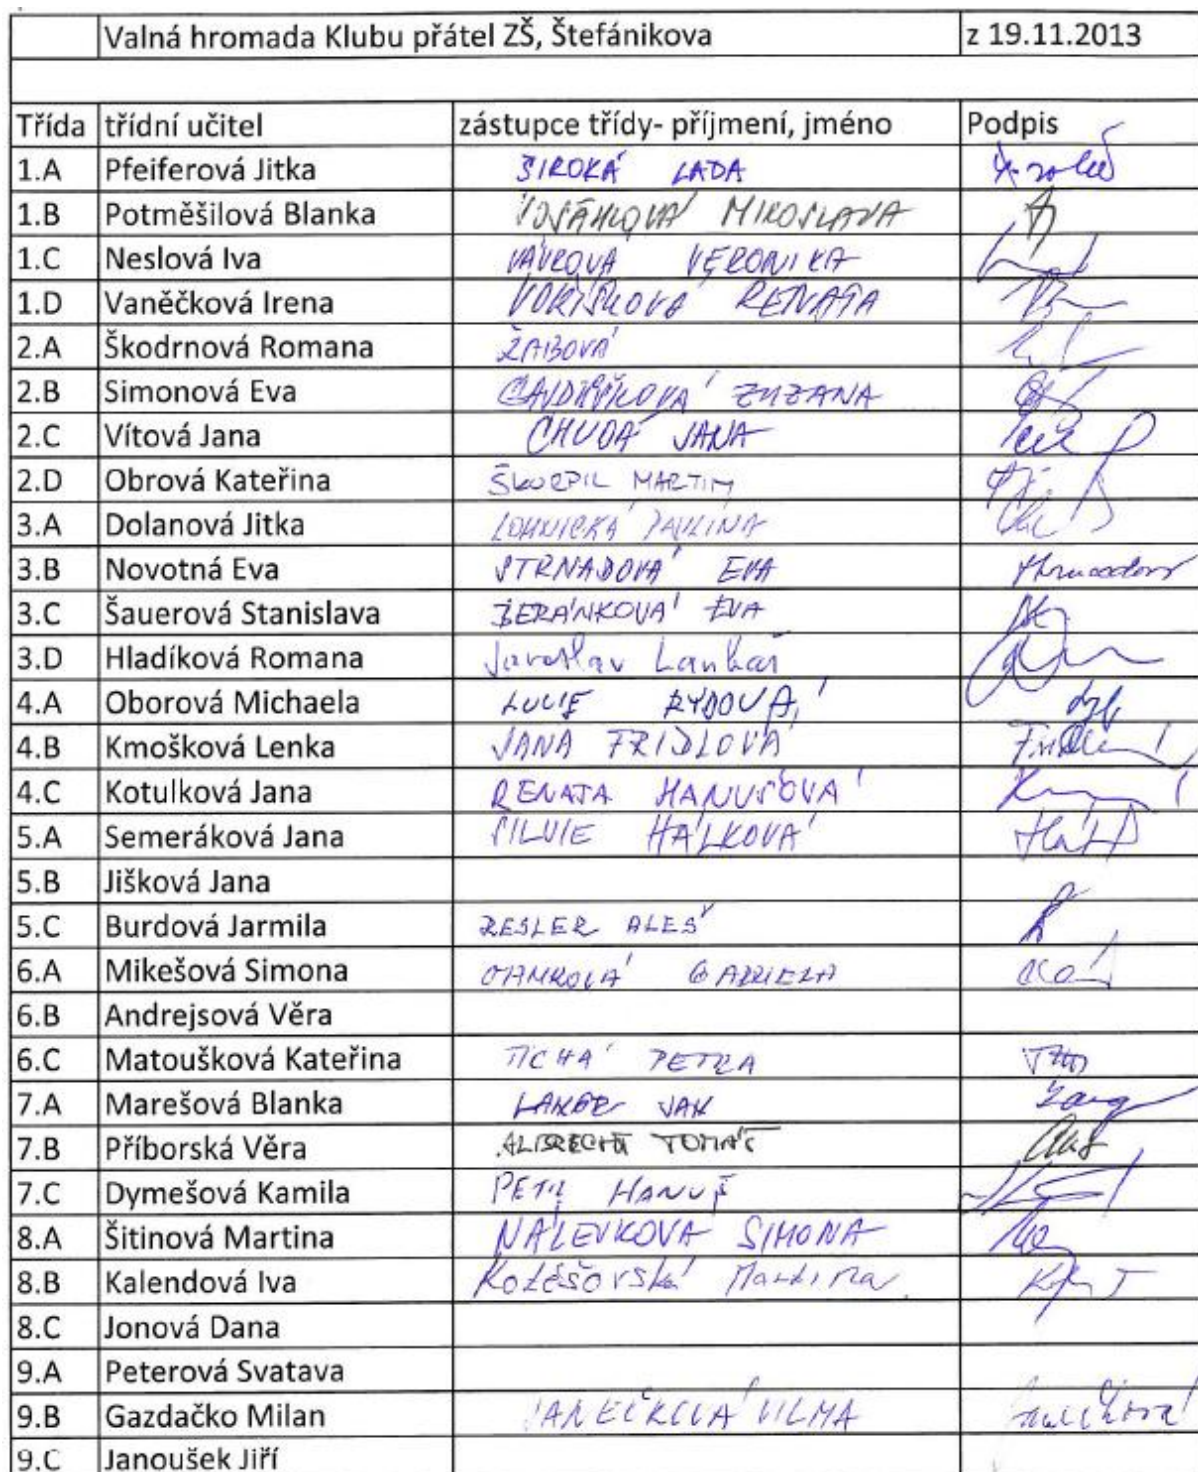 Valná hromada Klubu přátel ZŠ, Štefánikova z 19.11.2013
Třída třídní učitel zástupce třídy- příjmení, jméno Podpis
1.A Pfeiferová Jitka ŠIROKÁ LADA
1.B Potměšilová Blanka MIROSLAVA
1.C Neslová Iva VÁVROVÁ VERONIKA
1.D Vaněčková Irena VOŘÍŠKOVÁ RENATA
2.A Škodrnová Romana ŽABOVÁ
2.B Simonová Eva ZUZANA
2.C Vítová Jana CHUDÁ JANA
2.D Obrová Kateřina ŠKORPIL MARTIN
3.A Dolanová Jitka PAVLÍNA
3.B Novotná Eva STRNADOVÁ EVA
3.C Šauerová Stanislava BERÁNKOVÁ EVA
3.D Hladíková Romana Jaroslav Laňkaš
4.A Oborová Michaela LUCIE RYDOVÁ
4.B Kmošková Lenka JANA FRIDLOVÁ
4.C Kotulková Jana RENATA HANUŠOVÁ
5.A Semeráková Jana SILVIE HÁLKOVÁ
5.B Jišková Jana
5.C Burdová Jarmila RESLER ALEŠ
6.A Mikešová Simona GABRIELA
6.B Andrejsová Věra
6.C Matoušková Kateřina TICHÁ PETRA
7.A Marešová Blanka LANGER JAN
7.B Příborská Věra ALBRECHT TOMÁŠ
7.C Dymešová Kamila PETR HANUŠ
8.A Šitinová Martina NÁLEVKOVÁ SIMONA
8.B Kalendová Iva Martina
8.C Jonová Dana
9.A Peterová Svatava
9.B Gazdačko Milan JANEČKOVÁ VILMA
9.C Janoušek Jiří